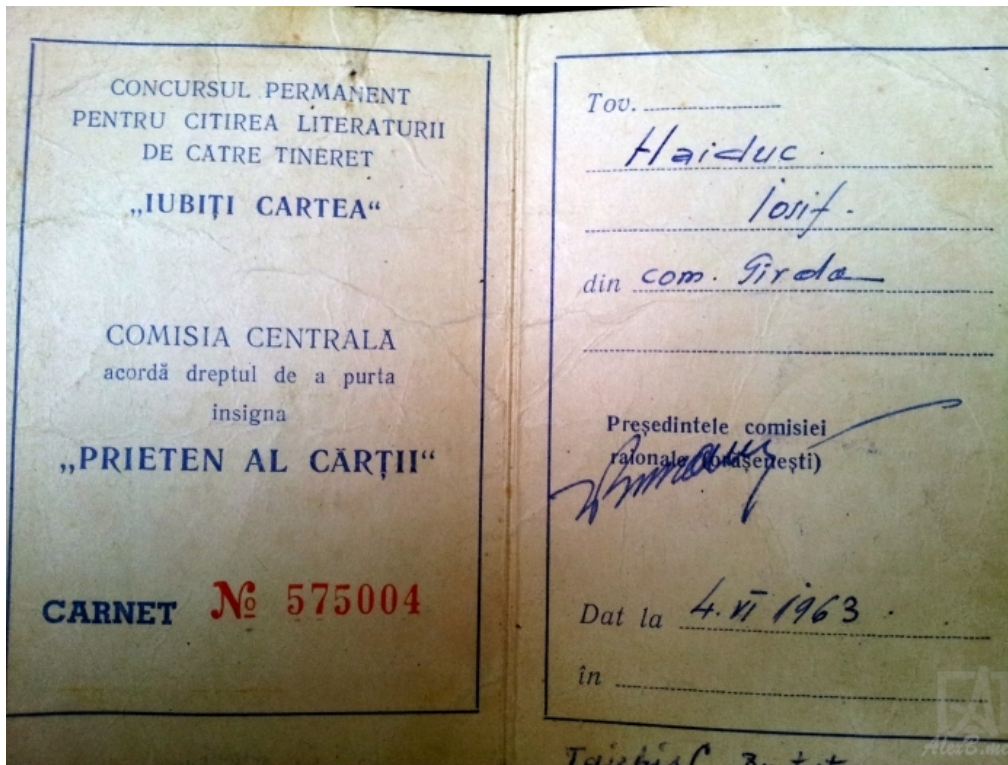 CONCURSUL PERMANENT
PENTRU CITIREA LITERATURII
DE CATRE TINERET
„IUBIȚI CARTEA“
COMISIA CENTRALĂ
acordă dreptul de a purta
insigna
„PRIETEN AL CĂRȚII“
CARNET № 575004
Tov.
Haiduc
Iosif.
din com. Gîrda
Președintele comisiei
raionale (orășenești)
Dat la 4. VI 1963.
în
AlexB.me